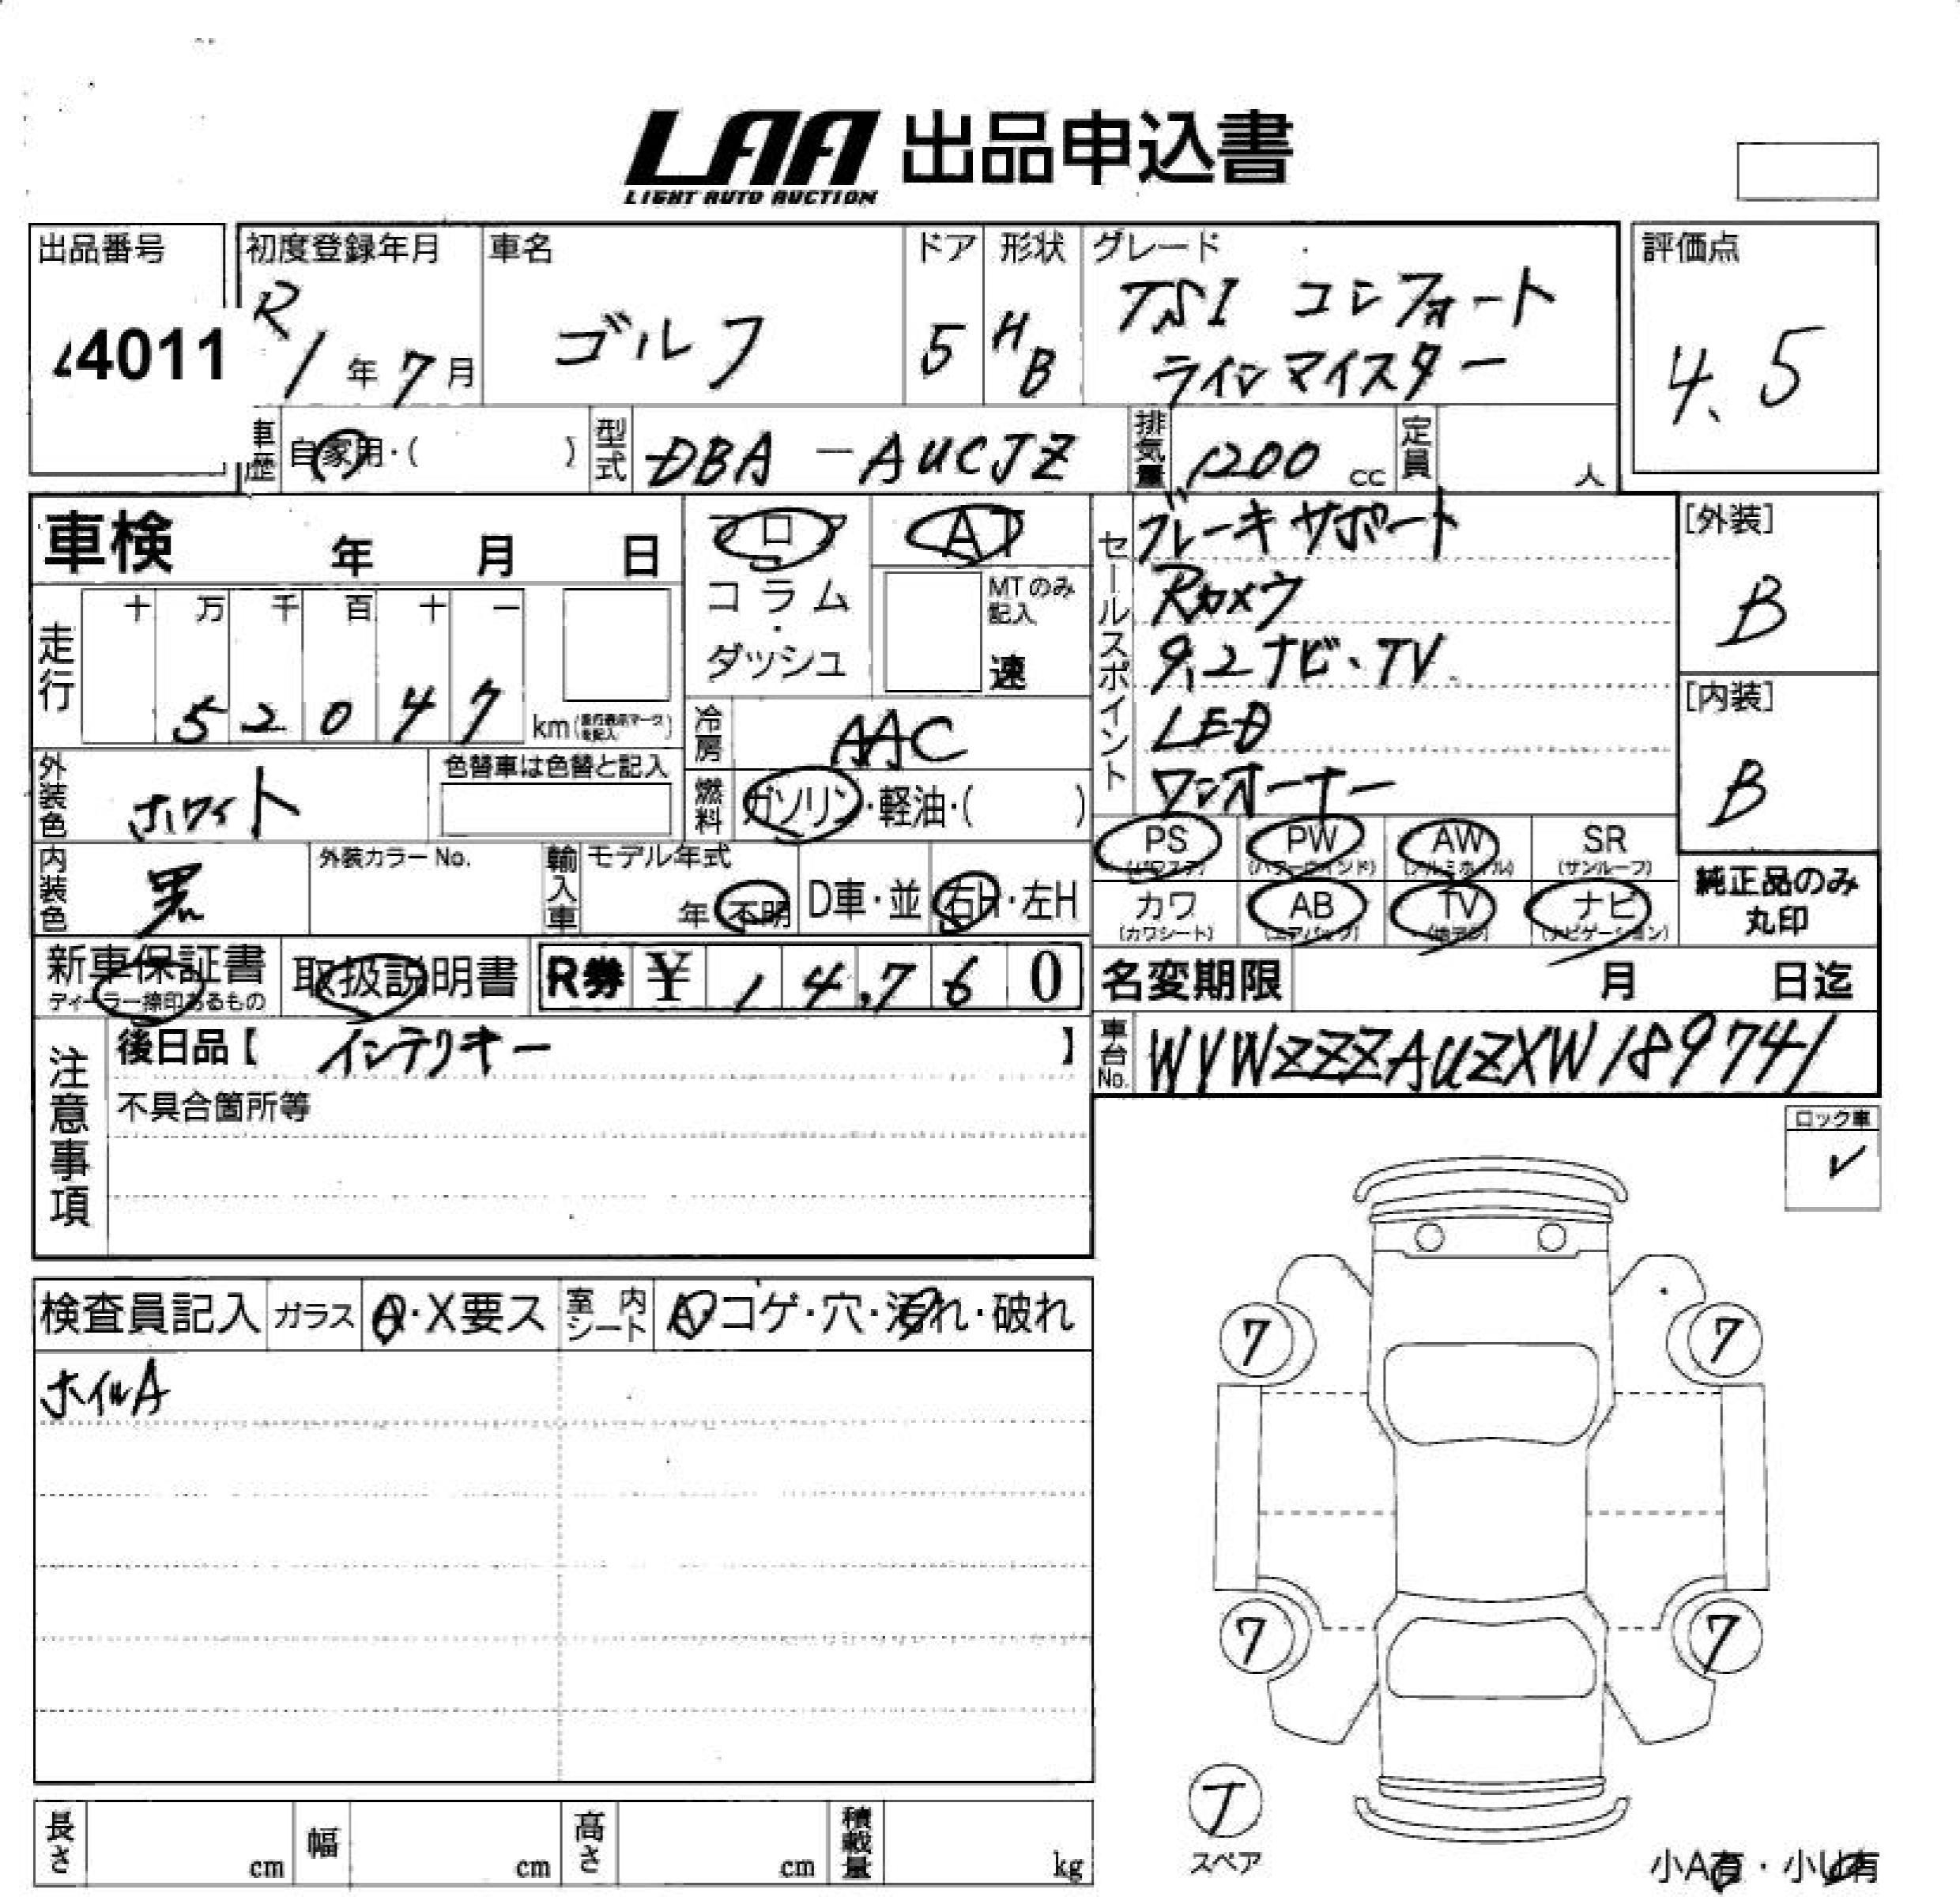 LAA 出品申込書
LIGHT AUTO AUCTION
出品番号
4011
初度登録年月
R
1年7月
車名
ゴルフ
ドア
5
形状
HB
グレード
TSI コンフォート
ラインマイスター
評価点
4.5
車歴
自家用・( )
型式
DBA-AUCJZ
排気量
1200 cc
定員
人
車検 年 月 日
フロア
コラム
・
ダッシュ
AT
MTのみ
記入
速
走行
十 万 千 百 十 一
5 2 0 4 7
km(走行表示マークを記入)
冷房
AAC
外装色
ホワイト
色替車は色替と記入
燃料
ガソリン・軽油・( )
内装色
黒
外装カラーNo.
輸入車
モデル年式
年 不明
D車・並
右H・左H
セールスポイント
ブレーキサポート
Rカメラ
9.2ナビ・TV
LED
ワンオーナー
[外装]
B
[内装]
B
PS
(パワステ)
PW
(パワーウィンド)
AW
(アルミホイル)
SR
(サンルーフ)
カワ
(カワシート)
AB
(エアバック)
TV
(地デジ)
ナビ
(ナビゲーション)
純正品のみ
丸印
新車保証書
ディーラー捺印あるもの
取扱説明書
R券 ¥ 1 4,7 6 0
名変期限 月 日迄
注意事項
後日品【 インテリキー 】
不具合箇所等
車台No.
WVWZZZAUZXW189741
ロック車
✓
検査員記入
ガラス
A・X要ス
室内シート
A・コゲ・穴・汚れ・破れ
ホイルA
7
7
7
7
スペア
小A有・小U有
長さ cm
幅 cm
高さ cm
積載量 kg